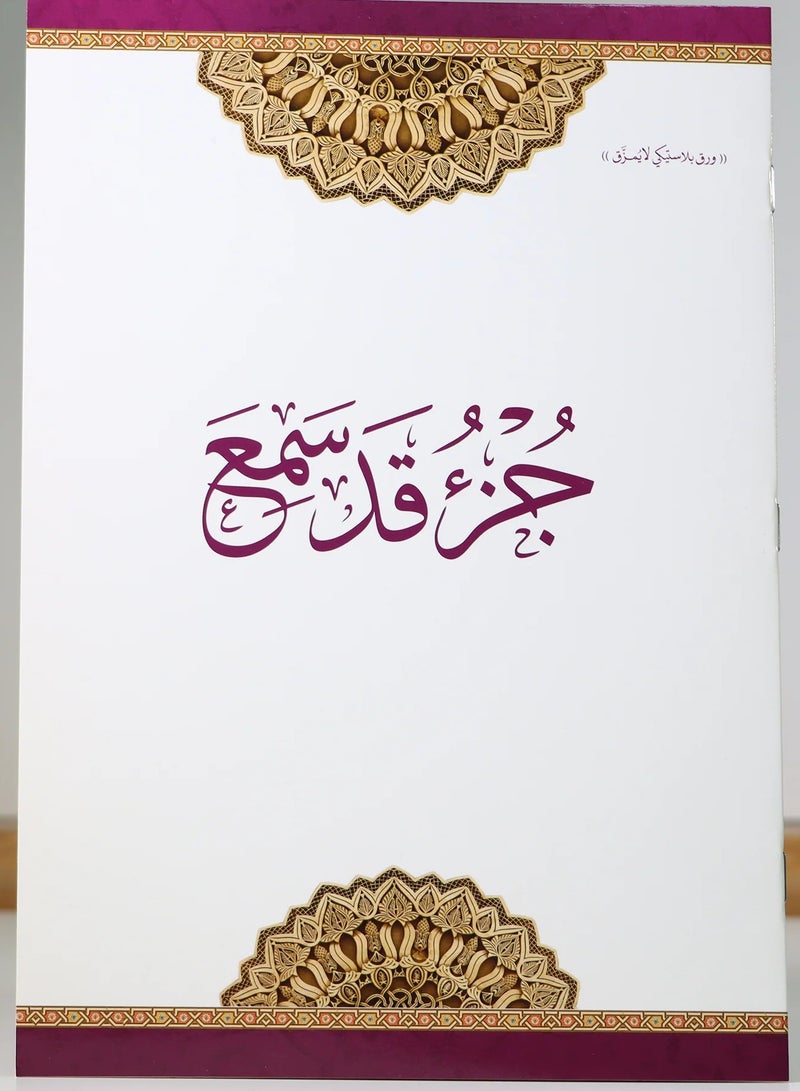 (( ورق بلاستيكي لا يُمزَّق ))
جُزْءُ قَدْ سَمِعَ